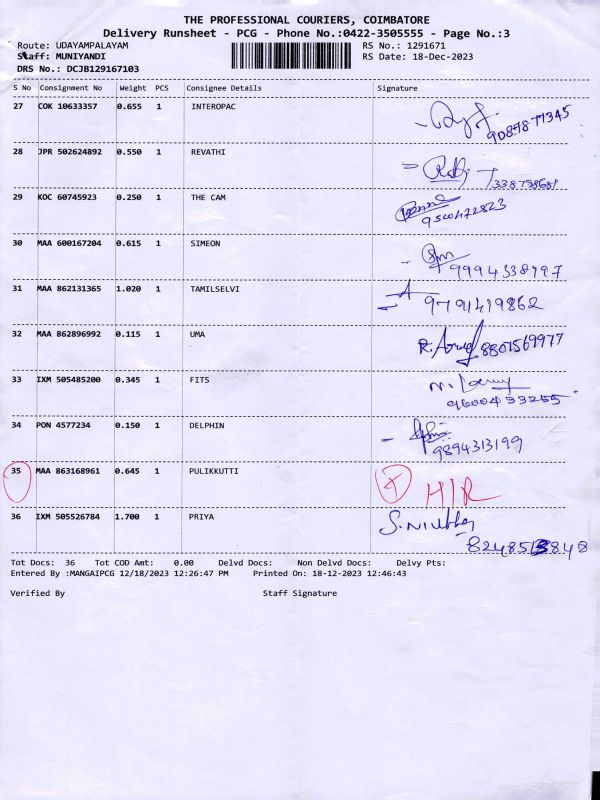 THE PROFESSIONAL COURIERS, COIMBATORE
Delivery Runsheet - PCG - Phone No.:0422-3505555 - Page No.:3
Route: UDAYAMPALAYAM RS No.: 1291671
Staff: MUNIYANDI RS Date: 18-Dec-2023
DRS No.: DCJB129167103
S No Consignment No Weight PCS Consignee Details Signature
27 COK 10633357 0.655 1 INTEROPAC
28 JPR 502624892 0.550 1 REVATHI
7338738681
29 KOC 60745923 0.250 1 THE CAM
9500422823
30 MAA 600167204 0.615 1 SIMEON
9994338197
31 MAA 862131365 1.020 1 TAMILSELVI
9791419862
32 MAA 862896992 0.115 1 UMA
8801569977
33 IXM 505485200 0.345 1 FITS
9600433255
34 PON 4577234 0.150 1 DELPHIN
9894313199
35 MAA 863168961 0.645 1 PULIKKUTTI
36 IXM 505526784 1.700 1 PRIYA
Tot Docs: 36 Tot COD Amt: 0.00 Delvd Docs: Non Delvd Docs: Delvy Pts:
Entered By :MANGAIPCG 12/18/2023 12:26:47 PM Printed On: 18-12-2023 12:46:43
Verified By Staff Signature